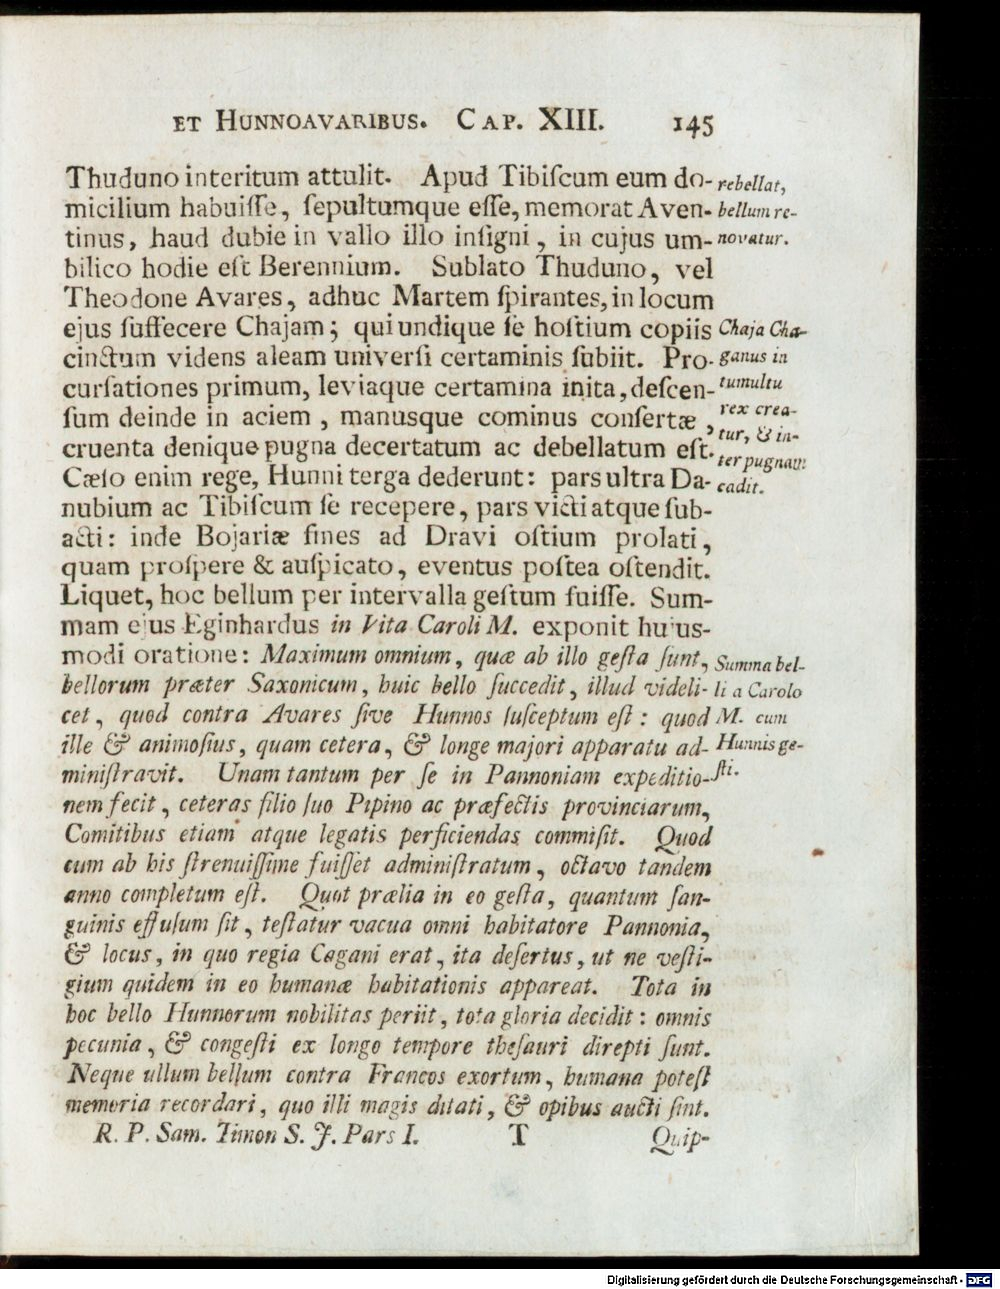 ET HUNNOAVARIBUS. CAP. XIII. 145
Thuduno interitum attulit. Apud Tibiſcum eum do-
micilium habuiſſe, ſepultumque eſſe, memorat Aven-
tinus, haud dubie in vallo illo inſigni, in cujus um-
bilico hodie eſt Berennium. Sublato Thuduno, vel
Theodone Avares, adhuc Martem ſpirantes, in locum
ejus ſuffecere Chajam; qui undique ſe hoſtium copiis
cinctum videns aleam univerſi certaminis ſubiit. Pro-
curſationes primum, leviaque certamina inita, deſcen-
ſum deinde in aciem, manusque cominus conſertæ,
cruenta denique pugna decertatum ac debellatum eſt.
Cæſo enim rege, Hunni terga dederunt: pars ultra Da-
nubium ac Tibiſcum ſe recepere, pars victi atque ſub-
acti: inde Bojariæ fines ad Dravi oſtium prolati,
quam proſpere & auſpicato, eventus poſtea oſtendit.
Liquet, hoc bellum per intervalla geſtum fuiſſe. Sum-
mam ejus Eginhardus in Vita Caroli M. exponit hujus-
modi oratione: Maximum omnium, quæ ab illo geſta ſunt,
bellorum præter Saxonicum, huic bello ſuccedit, illud videli-
cet, quod contra Avares ſive Hunnos ſuſceptum eſt: quod
ille & animoſius, quam cetera, & longe majori apparatu ad-
miniſtravit. Unam tantum per ſe in Pannoniam expeditio-
nem fecit, ceteras filio ſuo Pipino ac præfectis provinciarum,
Comitibus etiam atque legatis perficiendas commiſit. Quod
cum ab his ſtrenuiſſime fuiſſet adminiſtratum, octavo tandem
anno completum eſt. Quot prælia in eo geſta, quantum ſan-
guinis effuſum ſit, teſtatur vacua omni habitatore Pannonia,
& locus, in quo regia Cagani erat, ita deſertus, ut ne veſti-
gium quidem in eo humanæ habitationis appareat. Tota in
hoc bello Hunnorum nobilitas periit, tota gloria decidit: omnis
pecunia, & congeſti ex longo tempore theſauri direpti ſunt.
Neque ullum bellum contra Francos exortum, humana poteſt
memoria recordari, quo illi magis ditati, & opibus aucti ſint.
R. P. Sam. Timon S. J. Pars I. T Quip-
rebellat,
bellum re-
novatur.
Chaja Cha-
ganus in
tumultu
rex crea-
tur, & in-
ter pugnam
cadit.
Summa bel-
li a Carolo
M. cum
Hunnis ge-
ſti.
Digitalisierung gefördert durch die Deutsche Forschungsgemeinschaft - DFG